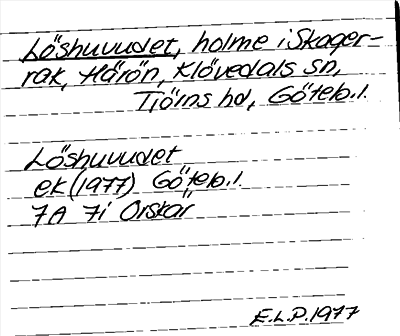 Löshuvudet, holme i Skager-
rak, Härön, Klövedals sn,
Tjörns hd, Göteb.l.
Löshuvudet
ek (1977) Göteb.l.
7A 7i Orskär
E.L.P. 1977